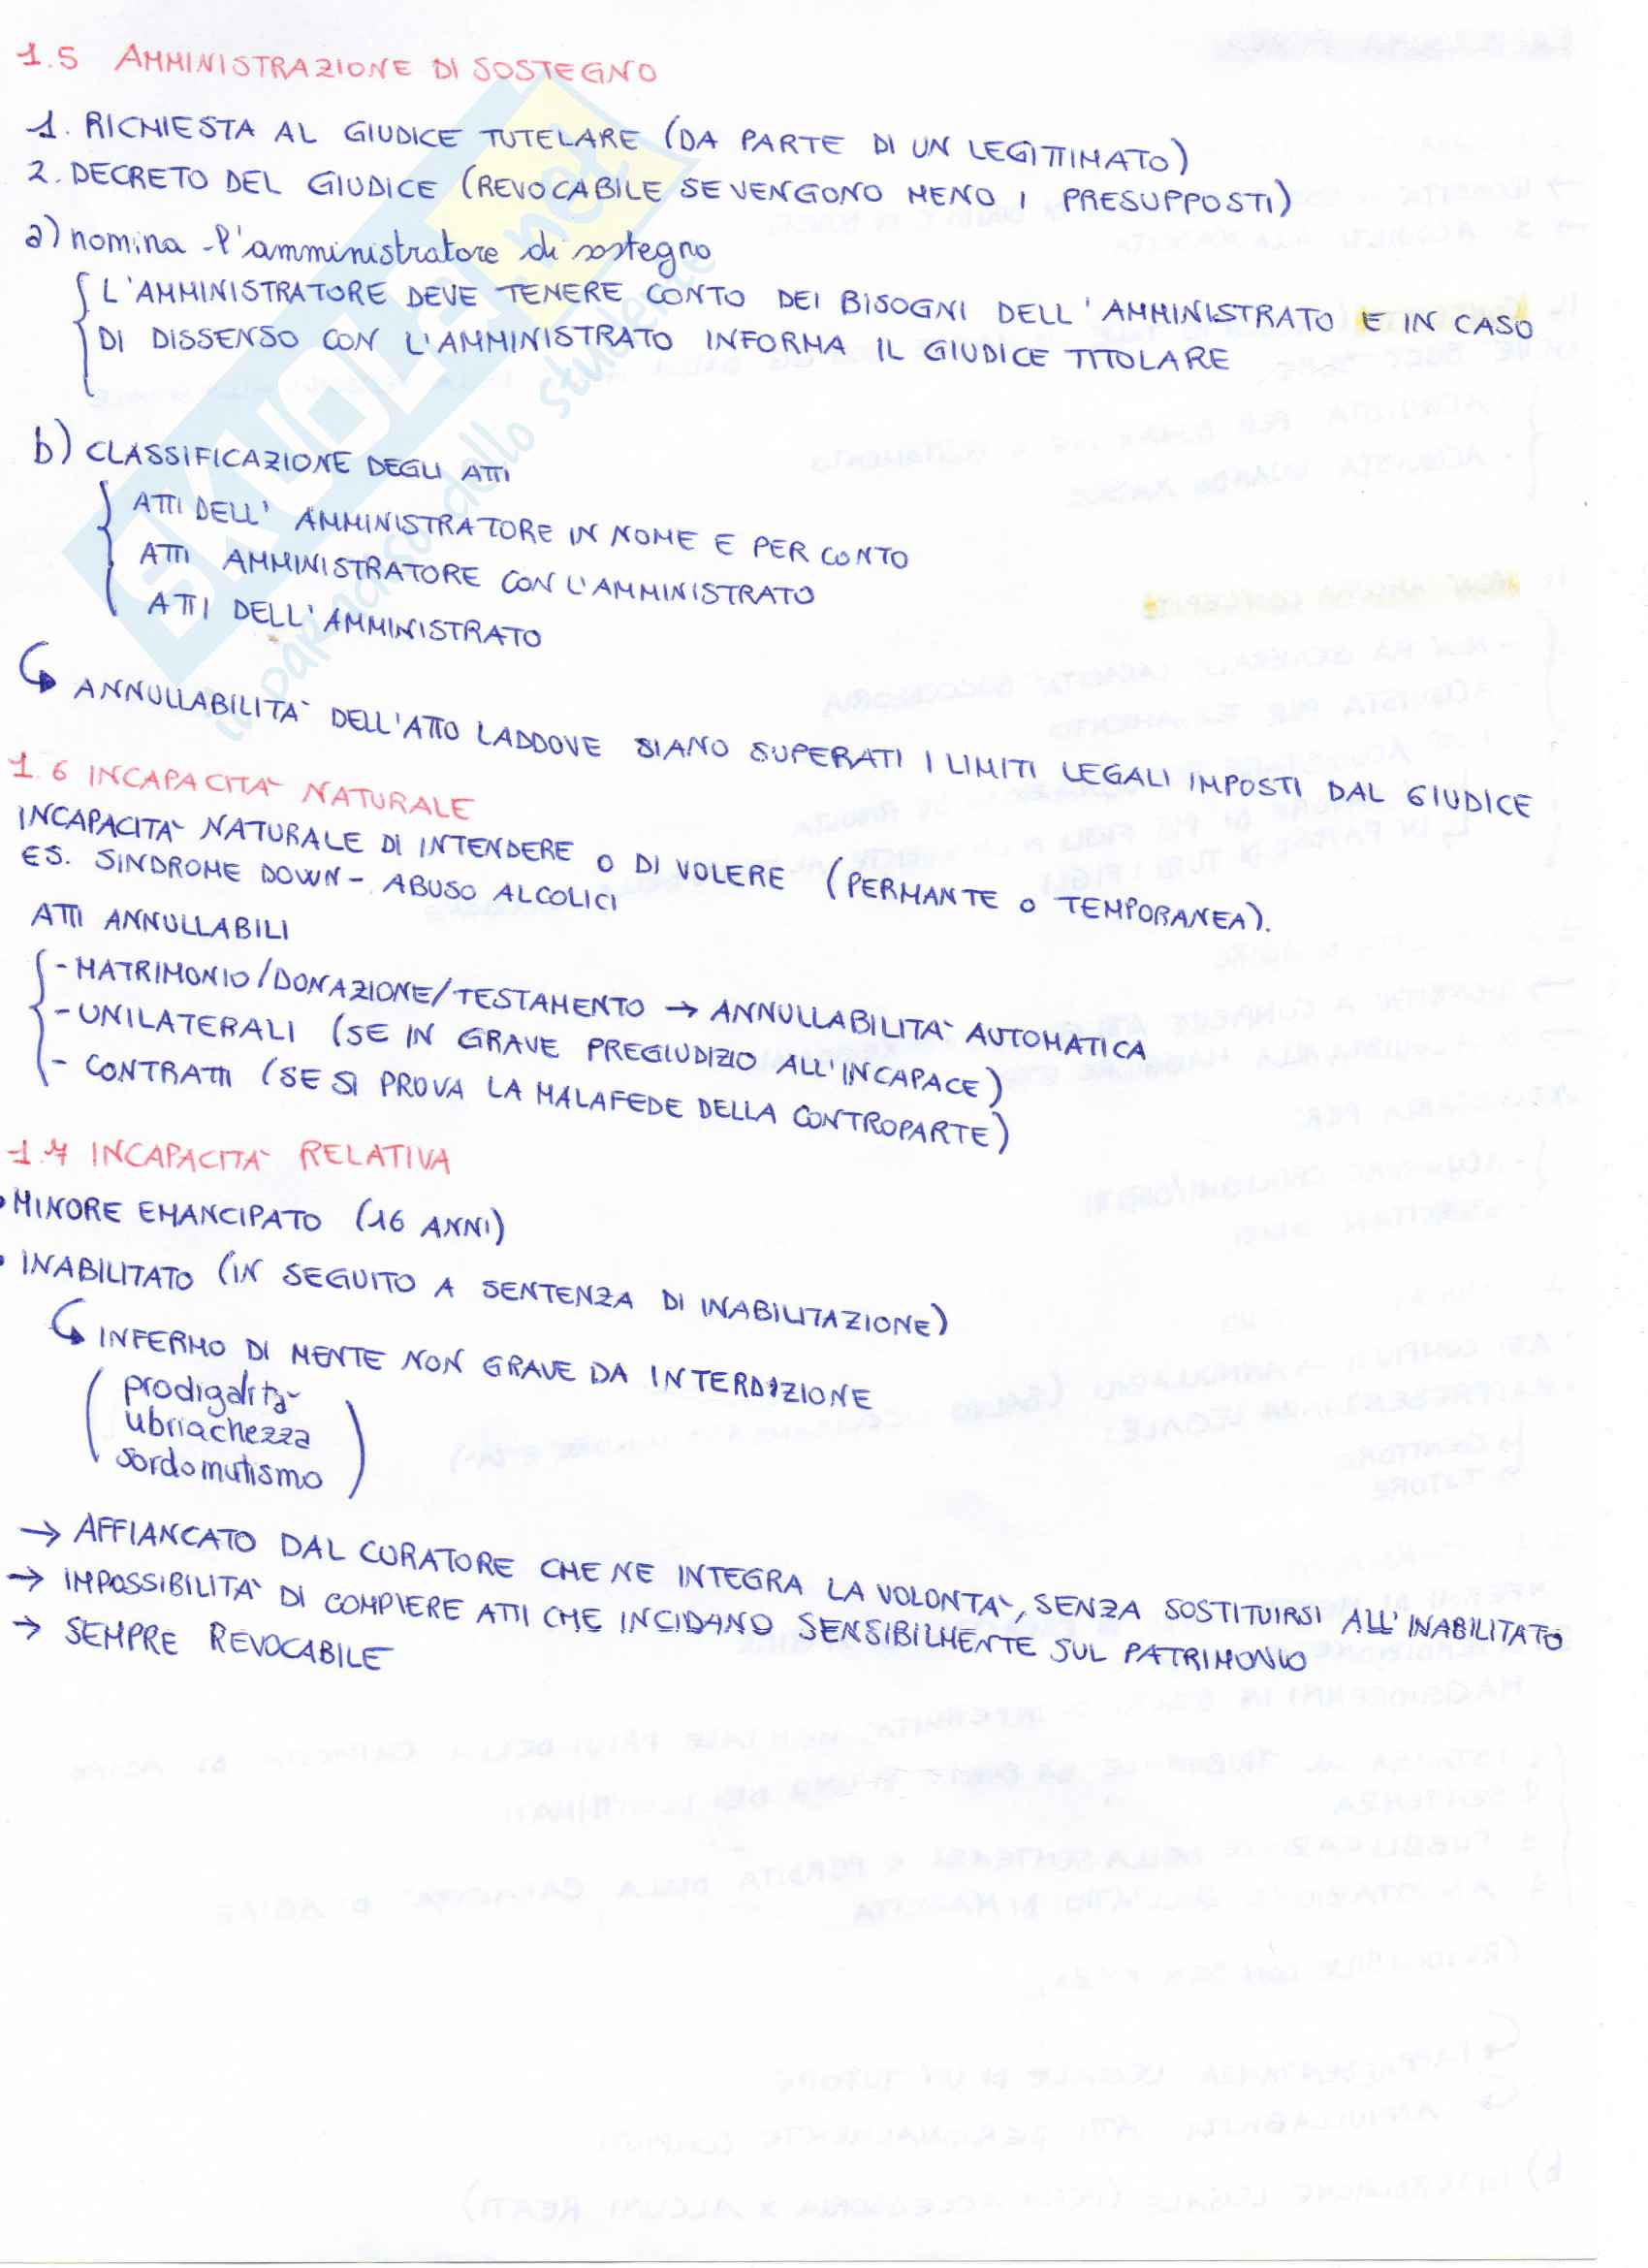 1.5 AMMINISTRAZIONE DI SOSTEGNO
1. RICHIESTA AL GIUDICE TUTELARE (DA PARTE DI UN LEGITTIMATO)
2. DECRETO DEL GIUDICE (REVOCABILE SE VENGONO MENO I PRESUPPOSTI)
a) nomina l'amministratore di sostegno
L'AMMINISTRATORE DEVE TENERE CONTO DEI BISOGNI DELL'AMMINISTRATO E IN CASO
DI DISSENSO CON L'AMMINISTRATO INFORMA IL GIUDICE TITOLARE
b) CLASSIFICAZIONE DEGLI ATTI
ATTI DELL'AMMINISTRATORE IN NOME E PER CONTO
ATTI AMMINISTRATORE CON L'AMMINISTRATO
ATTI DELL'AMMINISTRATO
ANNULLABILITA' DELL'ATTO LADDOVE SIANO SUPERATI I LIMITI LEGALI IMPOSTI DAL GIUDICE
1.6 INCAPACITA' NATURALE
INCAPACITA' NATURALE DI INTENDERE O DI VOLERE (PERMANTE O TEMPORANEA).
ES. SINDROME DOWN - ABUSO ALCOLICI
ATTI ANNULLABILI
- MATRIMONIO/DONAZIONE/TESTAMENTO → ANNULLABILITA' AUTOMATICA
- UNILATERALI (SE IN GRAVE PREGIUDIZIO ALL'INCAPACE)
- CONTRATTI (SE SI PROVA LA MALAFEDE DELLA CONTROPARTE)
1.7 INCAPACITA' RELATIVA
• MINORE EMANCIPATO (16 ANNI)
• INABILITATO (IN SEGUITO A SENTENZA DI INABILITAZIONE)
INFERMO DI MENTE NON GRAVE DA INTERDIZIONE
prodigalità
ubriachezza
sordomutismo
→ AFFIANCATO DAL CURATORE CHE NE INTEGRA LA VOLONTA', SENZA SOSTITUIRSI ALL'INABILITATO
→ IMPOSSIBILITA' DI COMPIERE ATTI CHE INCIDANO SENSIBILMENTE SUL PATRIMONIO
→ SEMPRE REVOCABILE
SKUOLA.net
il paradiso dello studente